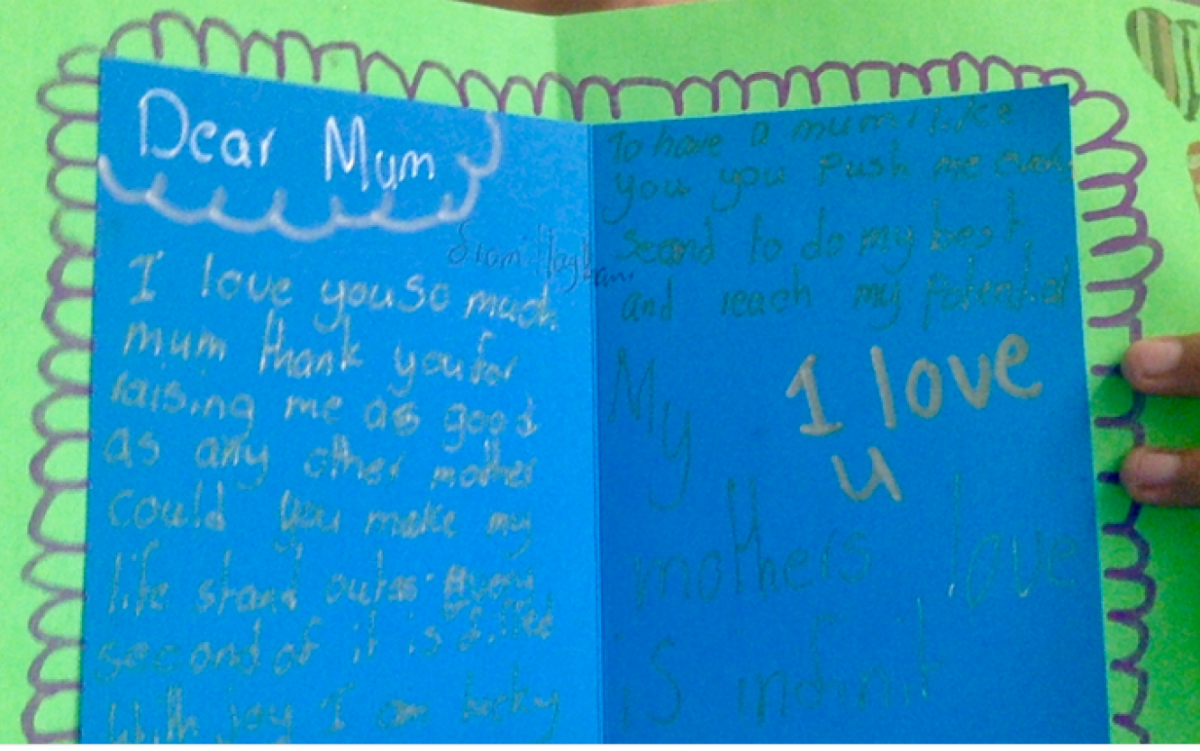 Dear Mum
I love you so much
mum thank you for
raising me as good
as any other mother
could you make my
life stand out every
second of it is filled
with joy I am lucky
To have a mum like
you you Push me every
second to do my best
and reach my Potential
I love
u
My
mothers love
is infinit